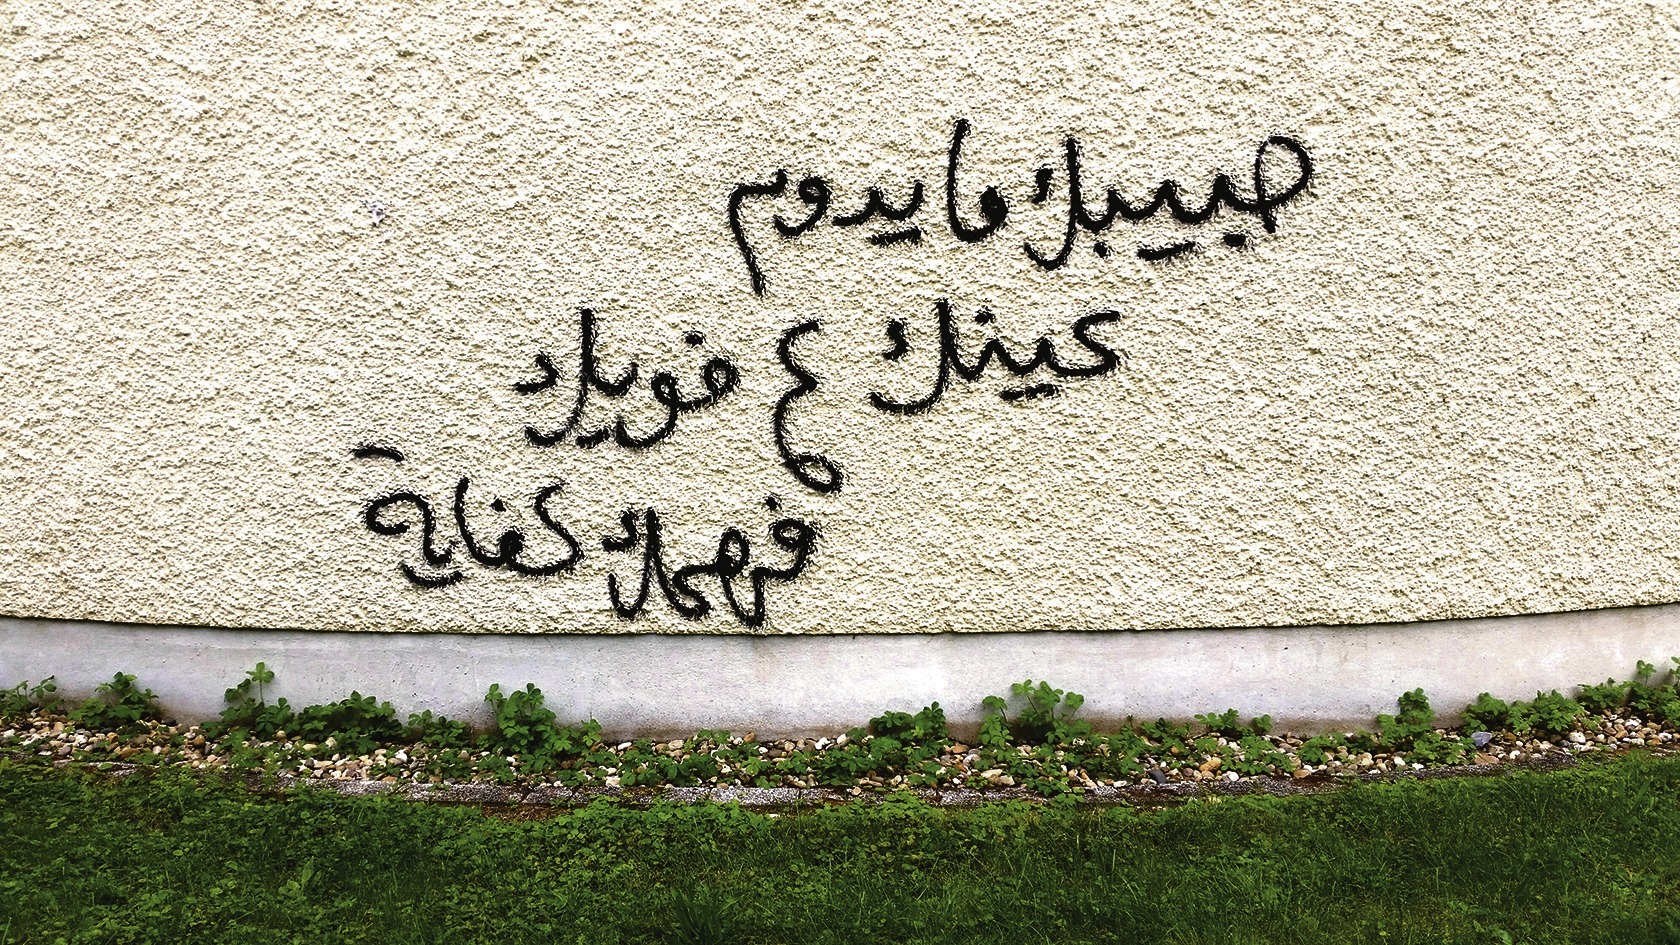 حبيبك ما يدوم
عينك ع فويلد
فهمك كفاية